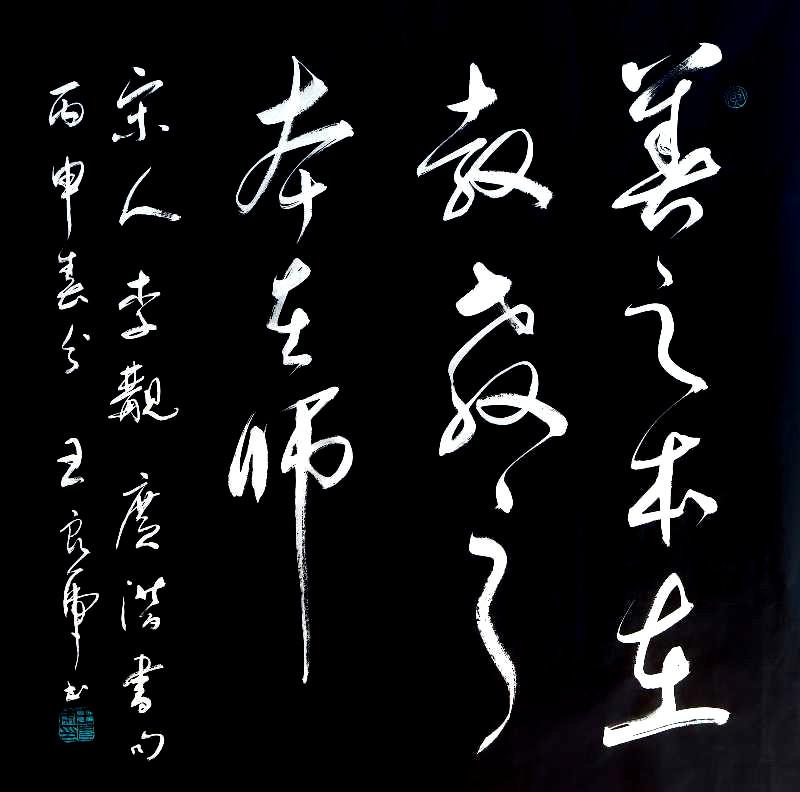 善之本在
教教之
本在师
宋人李觏广潜书句
丙申春分 王良军书